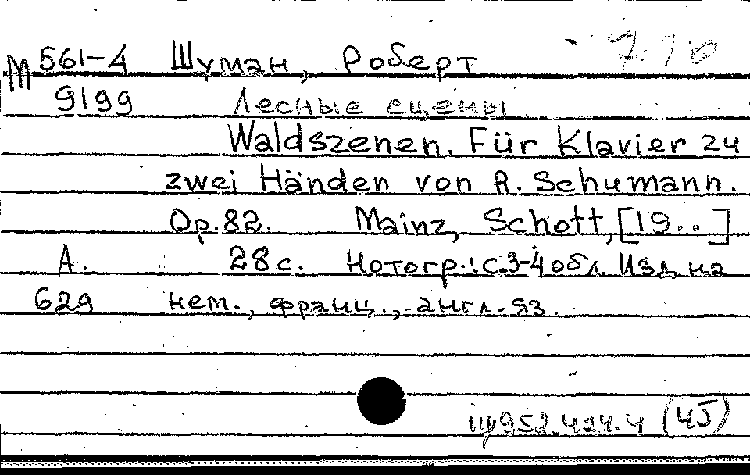 М 561-4 Шуман, Роберт 7.70
9199 Лесные сцены
Waldszenen. Für Klavier zu
zwei Händen von R. Schumann.
Op. 82. Mainz, Schott, [19..]
А. 28 с. Нотогр.: с. 3-4 обл. Изд. на
629 нем., франц., англ. яз.
(45)